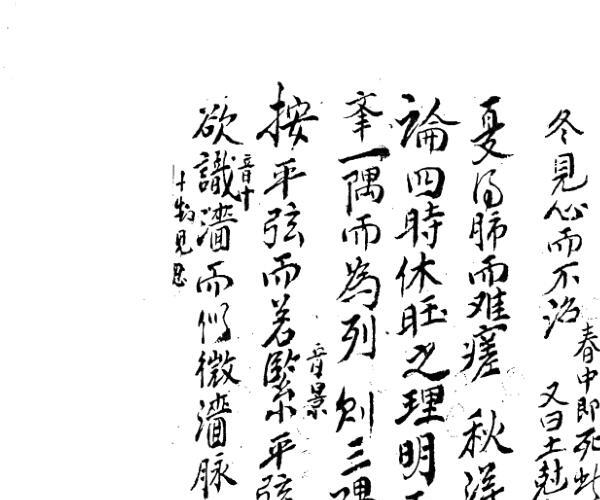 冬見心而不治
春中即死此
又曰土剋
夏得肺而难瘥 秋得
論四時休旺之理明
举一隅而為列 則三隅
按平弦而若緊音景平弦
欲識濇音十而似微濇脉